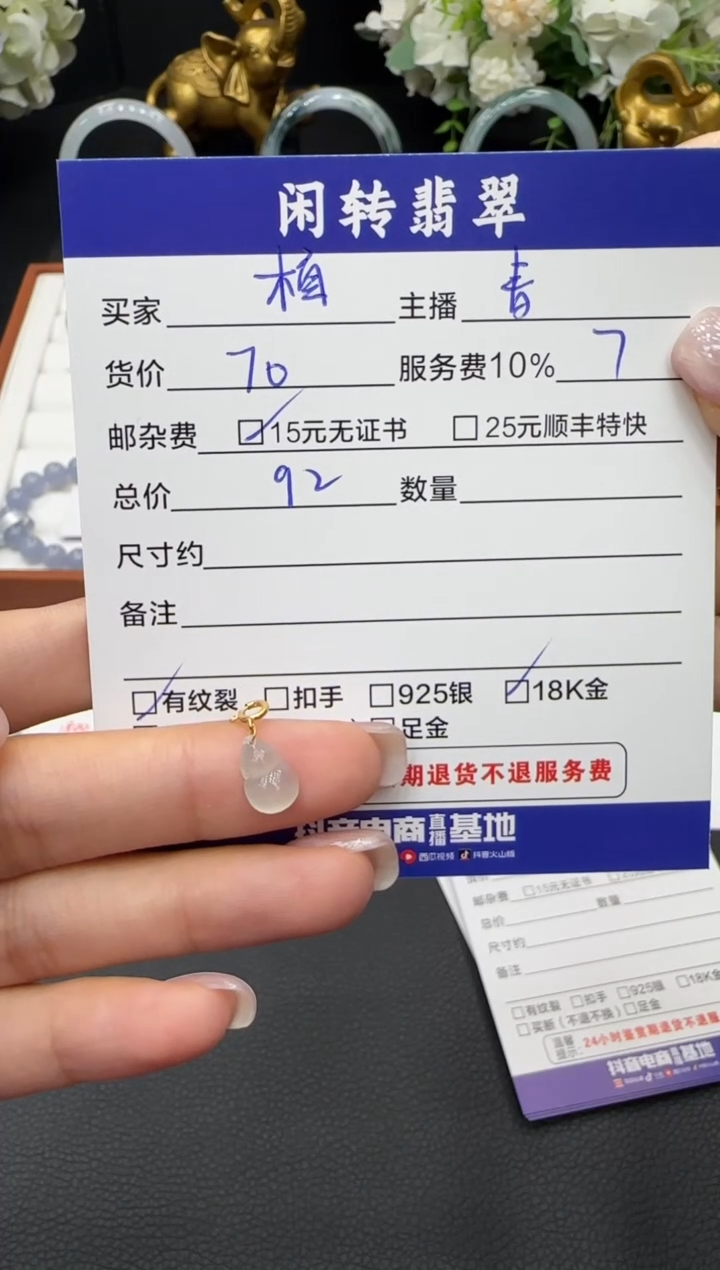 闲转翡翠
买家 植 主播 青
货价 70 服务费10% 7
邮杂费 ☑15元无证书 □25元顺丰特快
总价 92 数量
尺寸约
备注
☑有纹裂 □扣手 □925银 ☑18K金
□足金
期退货不退服务费
抖音电商直播基地
西瓜视频 抖音火山版
邮杂费 □15元无证书
总价 数量
尺寸约
备注
□有纹裂 □扣手 □925银 □18K金
□买断(不退不换) □足金
温馨提示: 24小时鉴赏期退货不退服
抖音电商直播基地